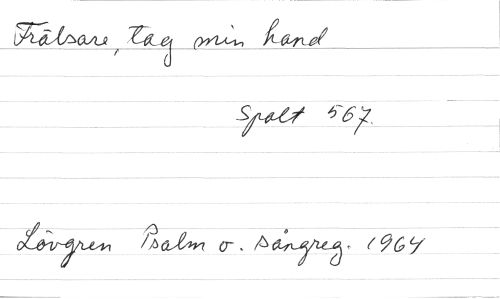 Frälsare, tag min hand
Spalt 567.
Lövgren Psalm o. sångreg. 1964